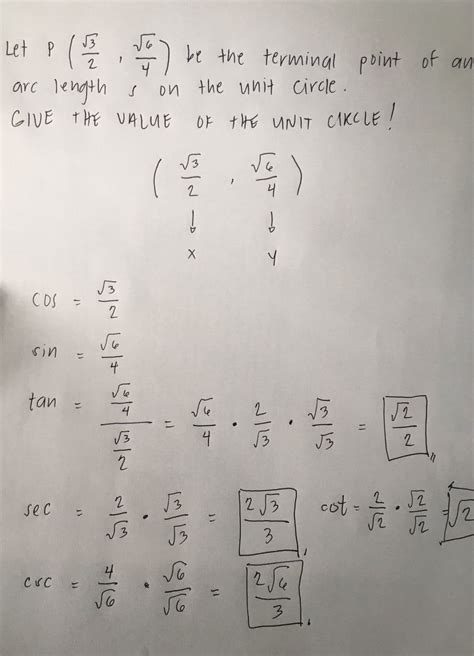 Let P ( √3/2 , √6/4 ) be the terminal point of an
arc length s on the unit circle.
GIVE THE VALUE OF THE UNIT CIRCLE!
( √3/2 , √6/4 )
↓ ↓
x y
cos = √3/2
sin = √6/4
tan = (√6/4)/(√3/2) = √6/4 · 2/√3 · √3/√3 = √2/2 //
sec = 2/√3 · √3/√3 = 2√3/3 , cot = 2/√2 · √2/√2 = √2
csc = 4/√6 · √6/√6 = 2√6/3 .